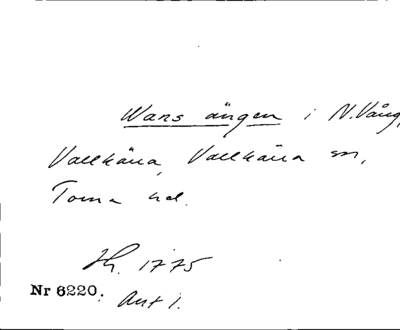 Wans ängen i N. Vång,
Vallkärra, Vallkärra sn,
Torna hd.
Hh. 1775
Nr 6220. Ant 1.